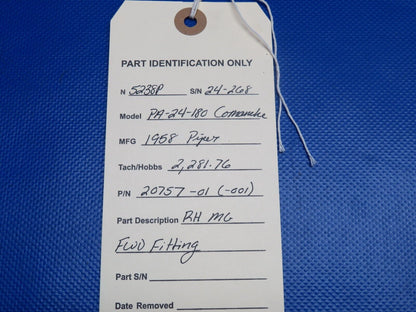 PART IDENTIFICATION ONLY
N 5238P S/N 24-268
Model PA-24-180 Comanche
MFG 1958 Piper
Tach/Hobbs 2,281.76
P/N 20757-01 (-001)
Part Description RH MG
FWD Fitting
Part S/N
Date Removed